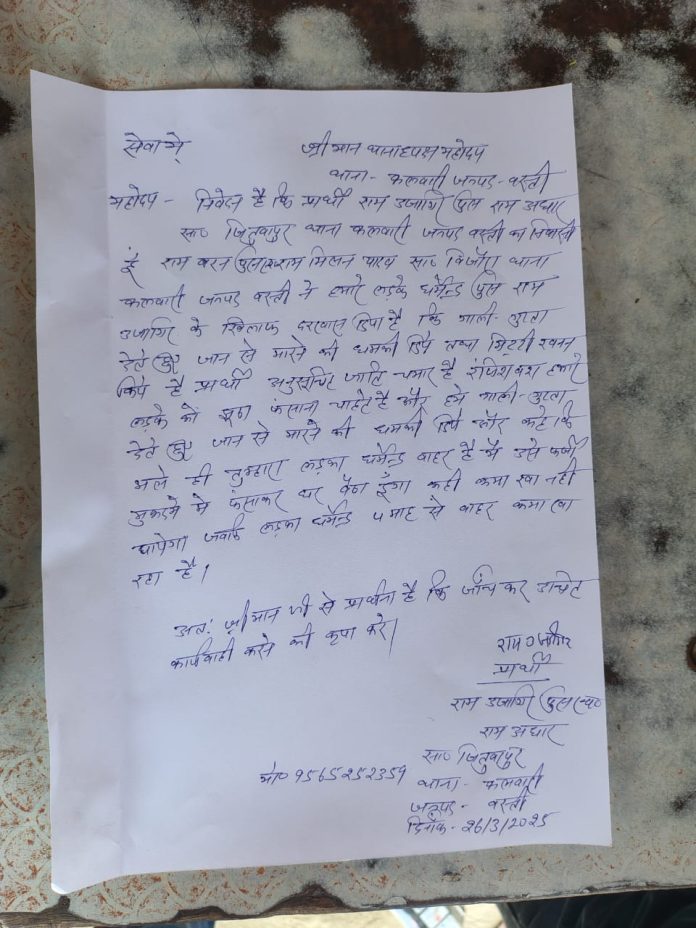 सेवा मे,
श्री मान थानाध्यक्ष महोदय
थाना - कलवारी जनपद - बस्ती
महोदय - निवेदन है कि प्रार्थी राम उजागिर पुत्र राम अधार
सा० जितुवापुर थाना कलवारी जनपद बस्ती का निवासी
हूँ राम बरन पुत्र राम मिलन यादव सा० थाना
कलवारी जनपद बस्ती ने हमारे लड़के धर्मेन्द्र पुत्र राम
उजागिर के खिलाफ दरखास दिया है कि गाली-गुप्ता
देते हुए जान से मारने की धमकी दिये तथा मिट्टी खनन
किये है प्रार्थी अनुसूचित जाति चमार है रंजिश वश हमारे
लड़के को झूठा फंसाना चाहते है और हमे गाली-गुप्ता
देते हुए जान से मारने की धमकी दिये और कहे कि
भले ही तुम्हारा लड़का धर्मेन्द्र बाहर है मै उसे फर्जी
मुकदमे मे फंसाकर घर बैठा दूँगा कही कमा खा नही
पायेगा जबकि लड़का धर्मेन्द्र ५ माह से बाहर कमा खा
रहा है।
अतः श्री मान जी से प्रार्थना है कि जाँच कर उचित
कार्यवाही करने की कृपा करे।
राम उजागिर
प्रार्थी
राम उजागिर पुत्र स्व०
राम अधार
सा० जितुवापुर
मो० 9565252359 थाना - कलवारी
जनपद - बस्ती
दिनाँक - 26/3/2025